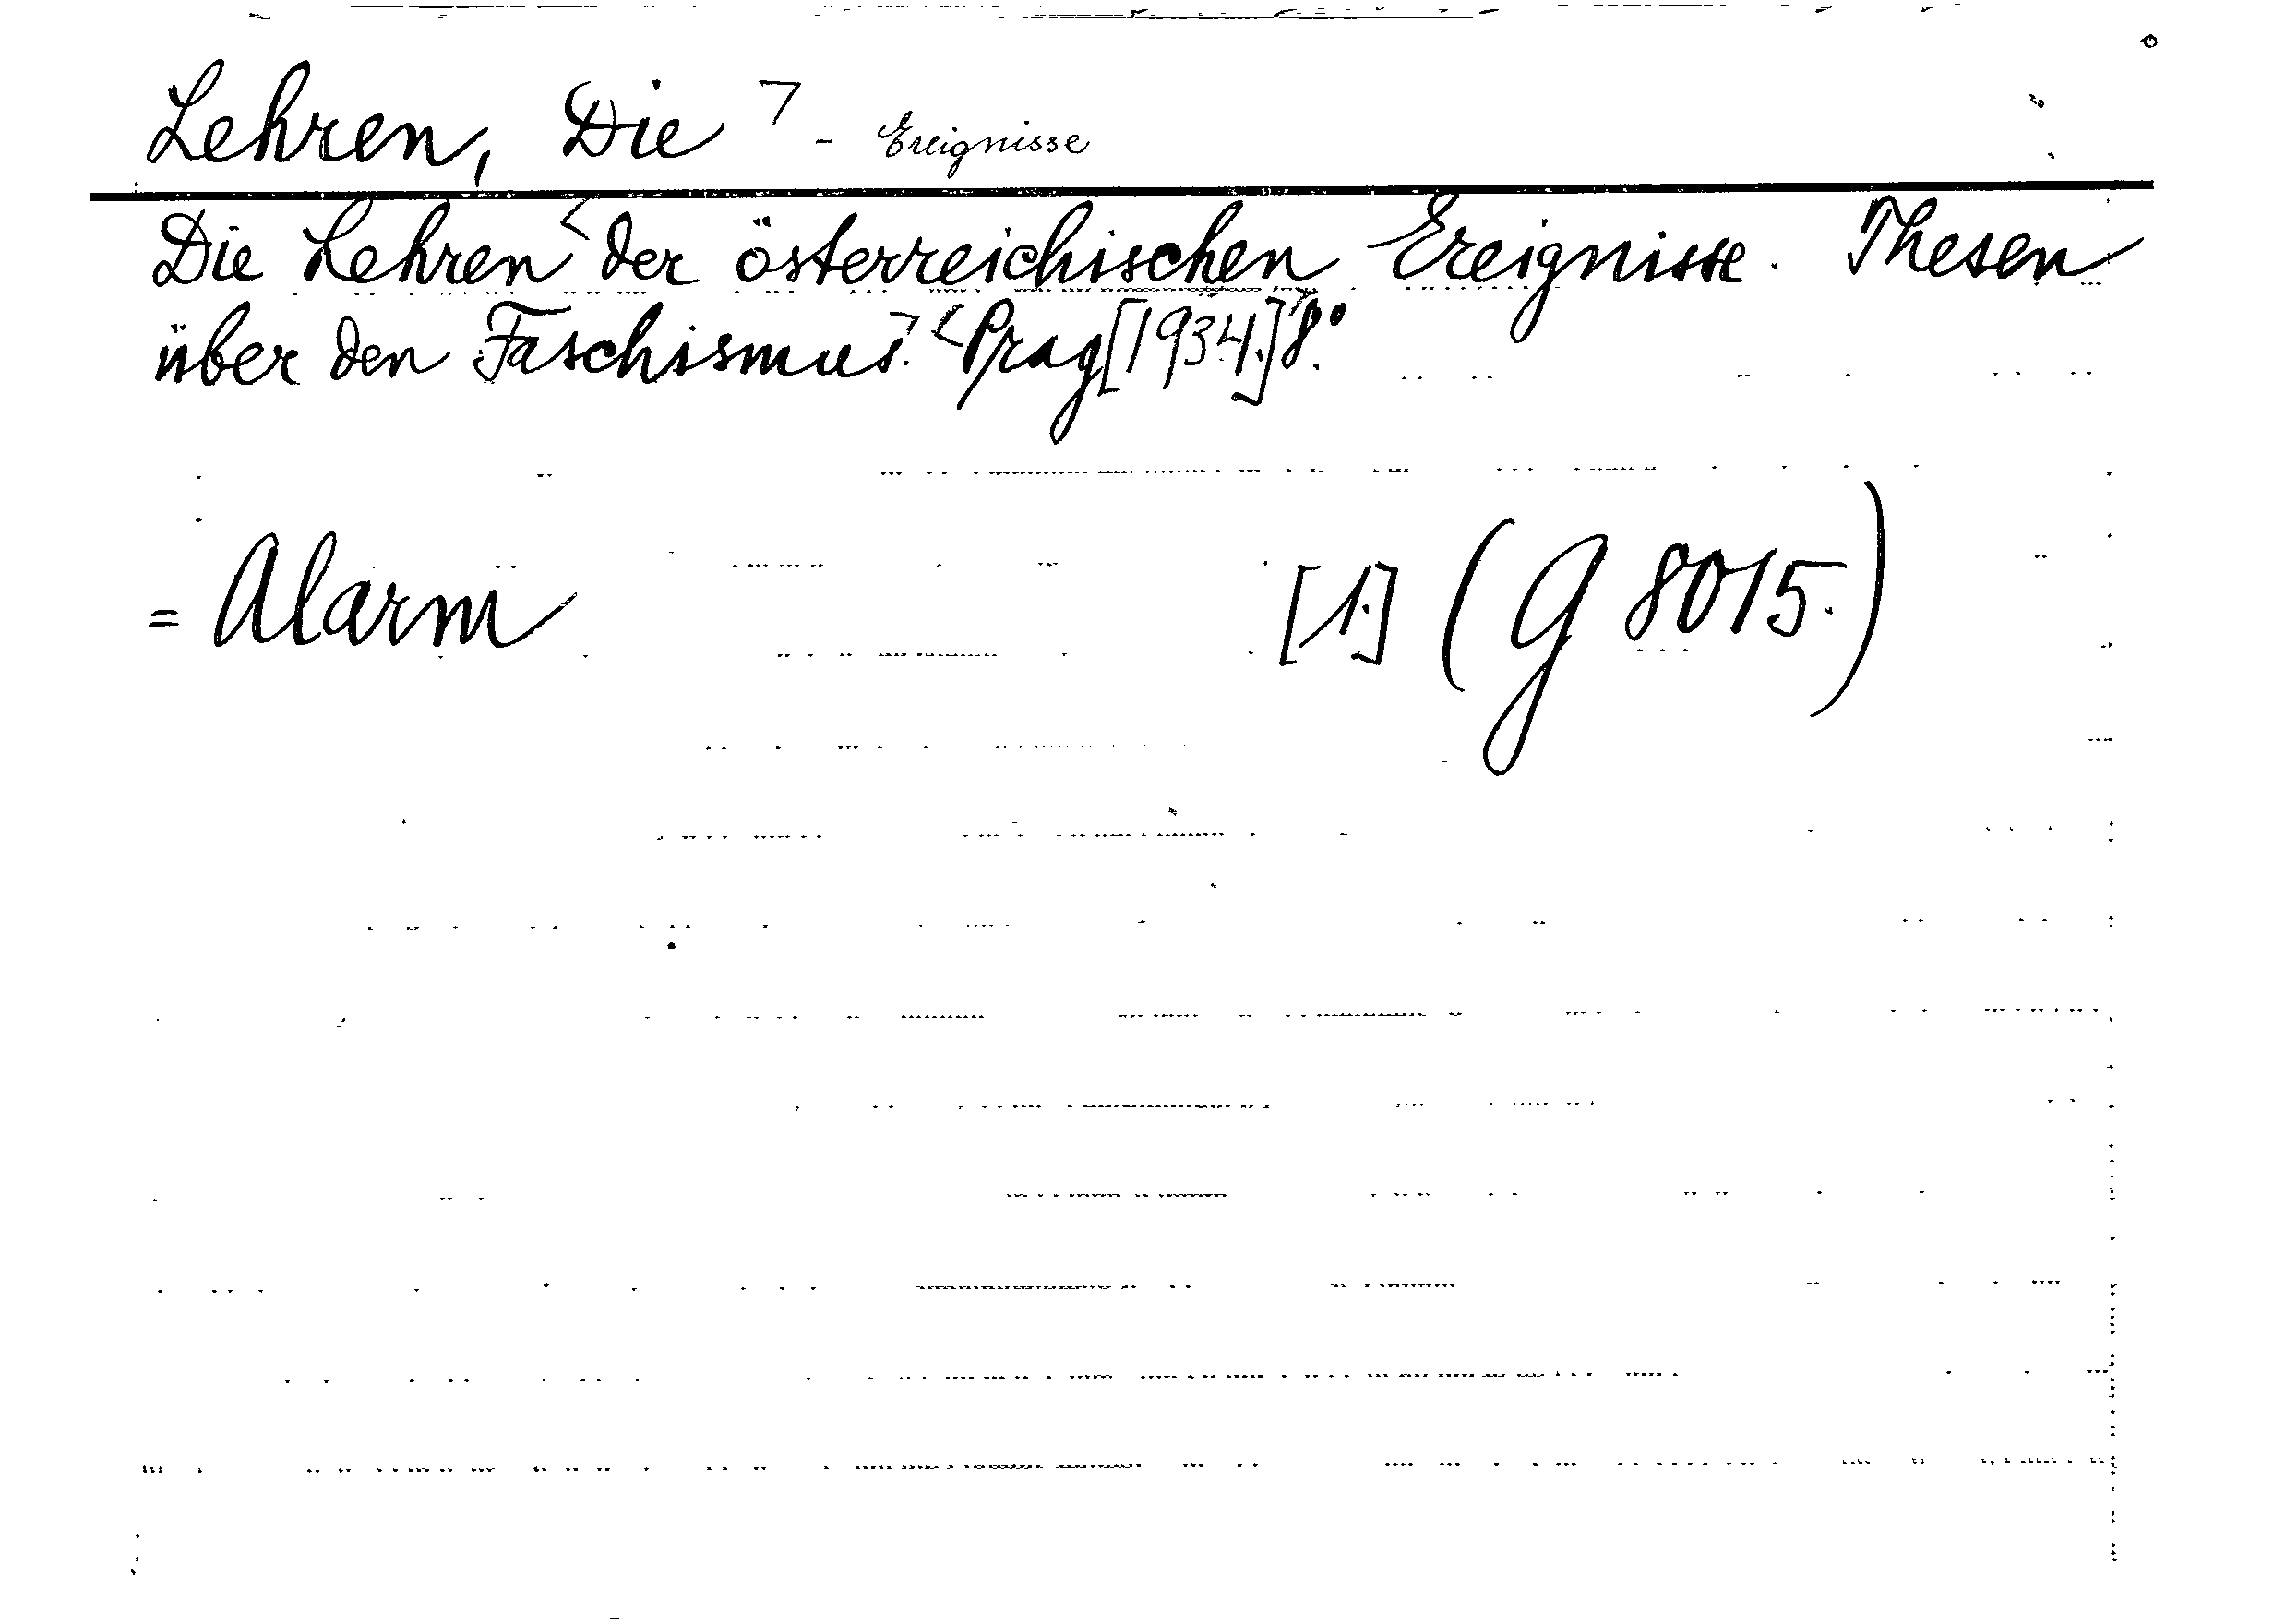 Lehren, Die ⌝ - Ereignisse
Die Lehren < der österreichischen Ereignisse. Thesen
über den Faschismus.⌝ < Prag [1934.] 8°.
= Alarm [1.] (G 8015.)